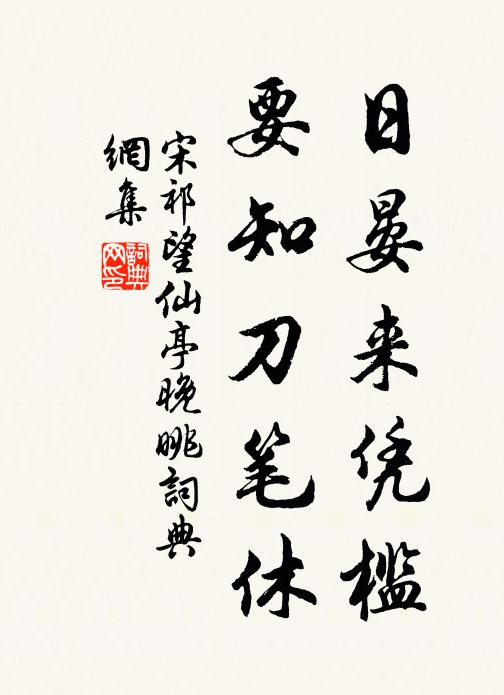 日晏来凭槛
要知刀笔休
宋祁望仙亭晚眺詞典
網集
詞典網印